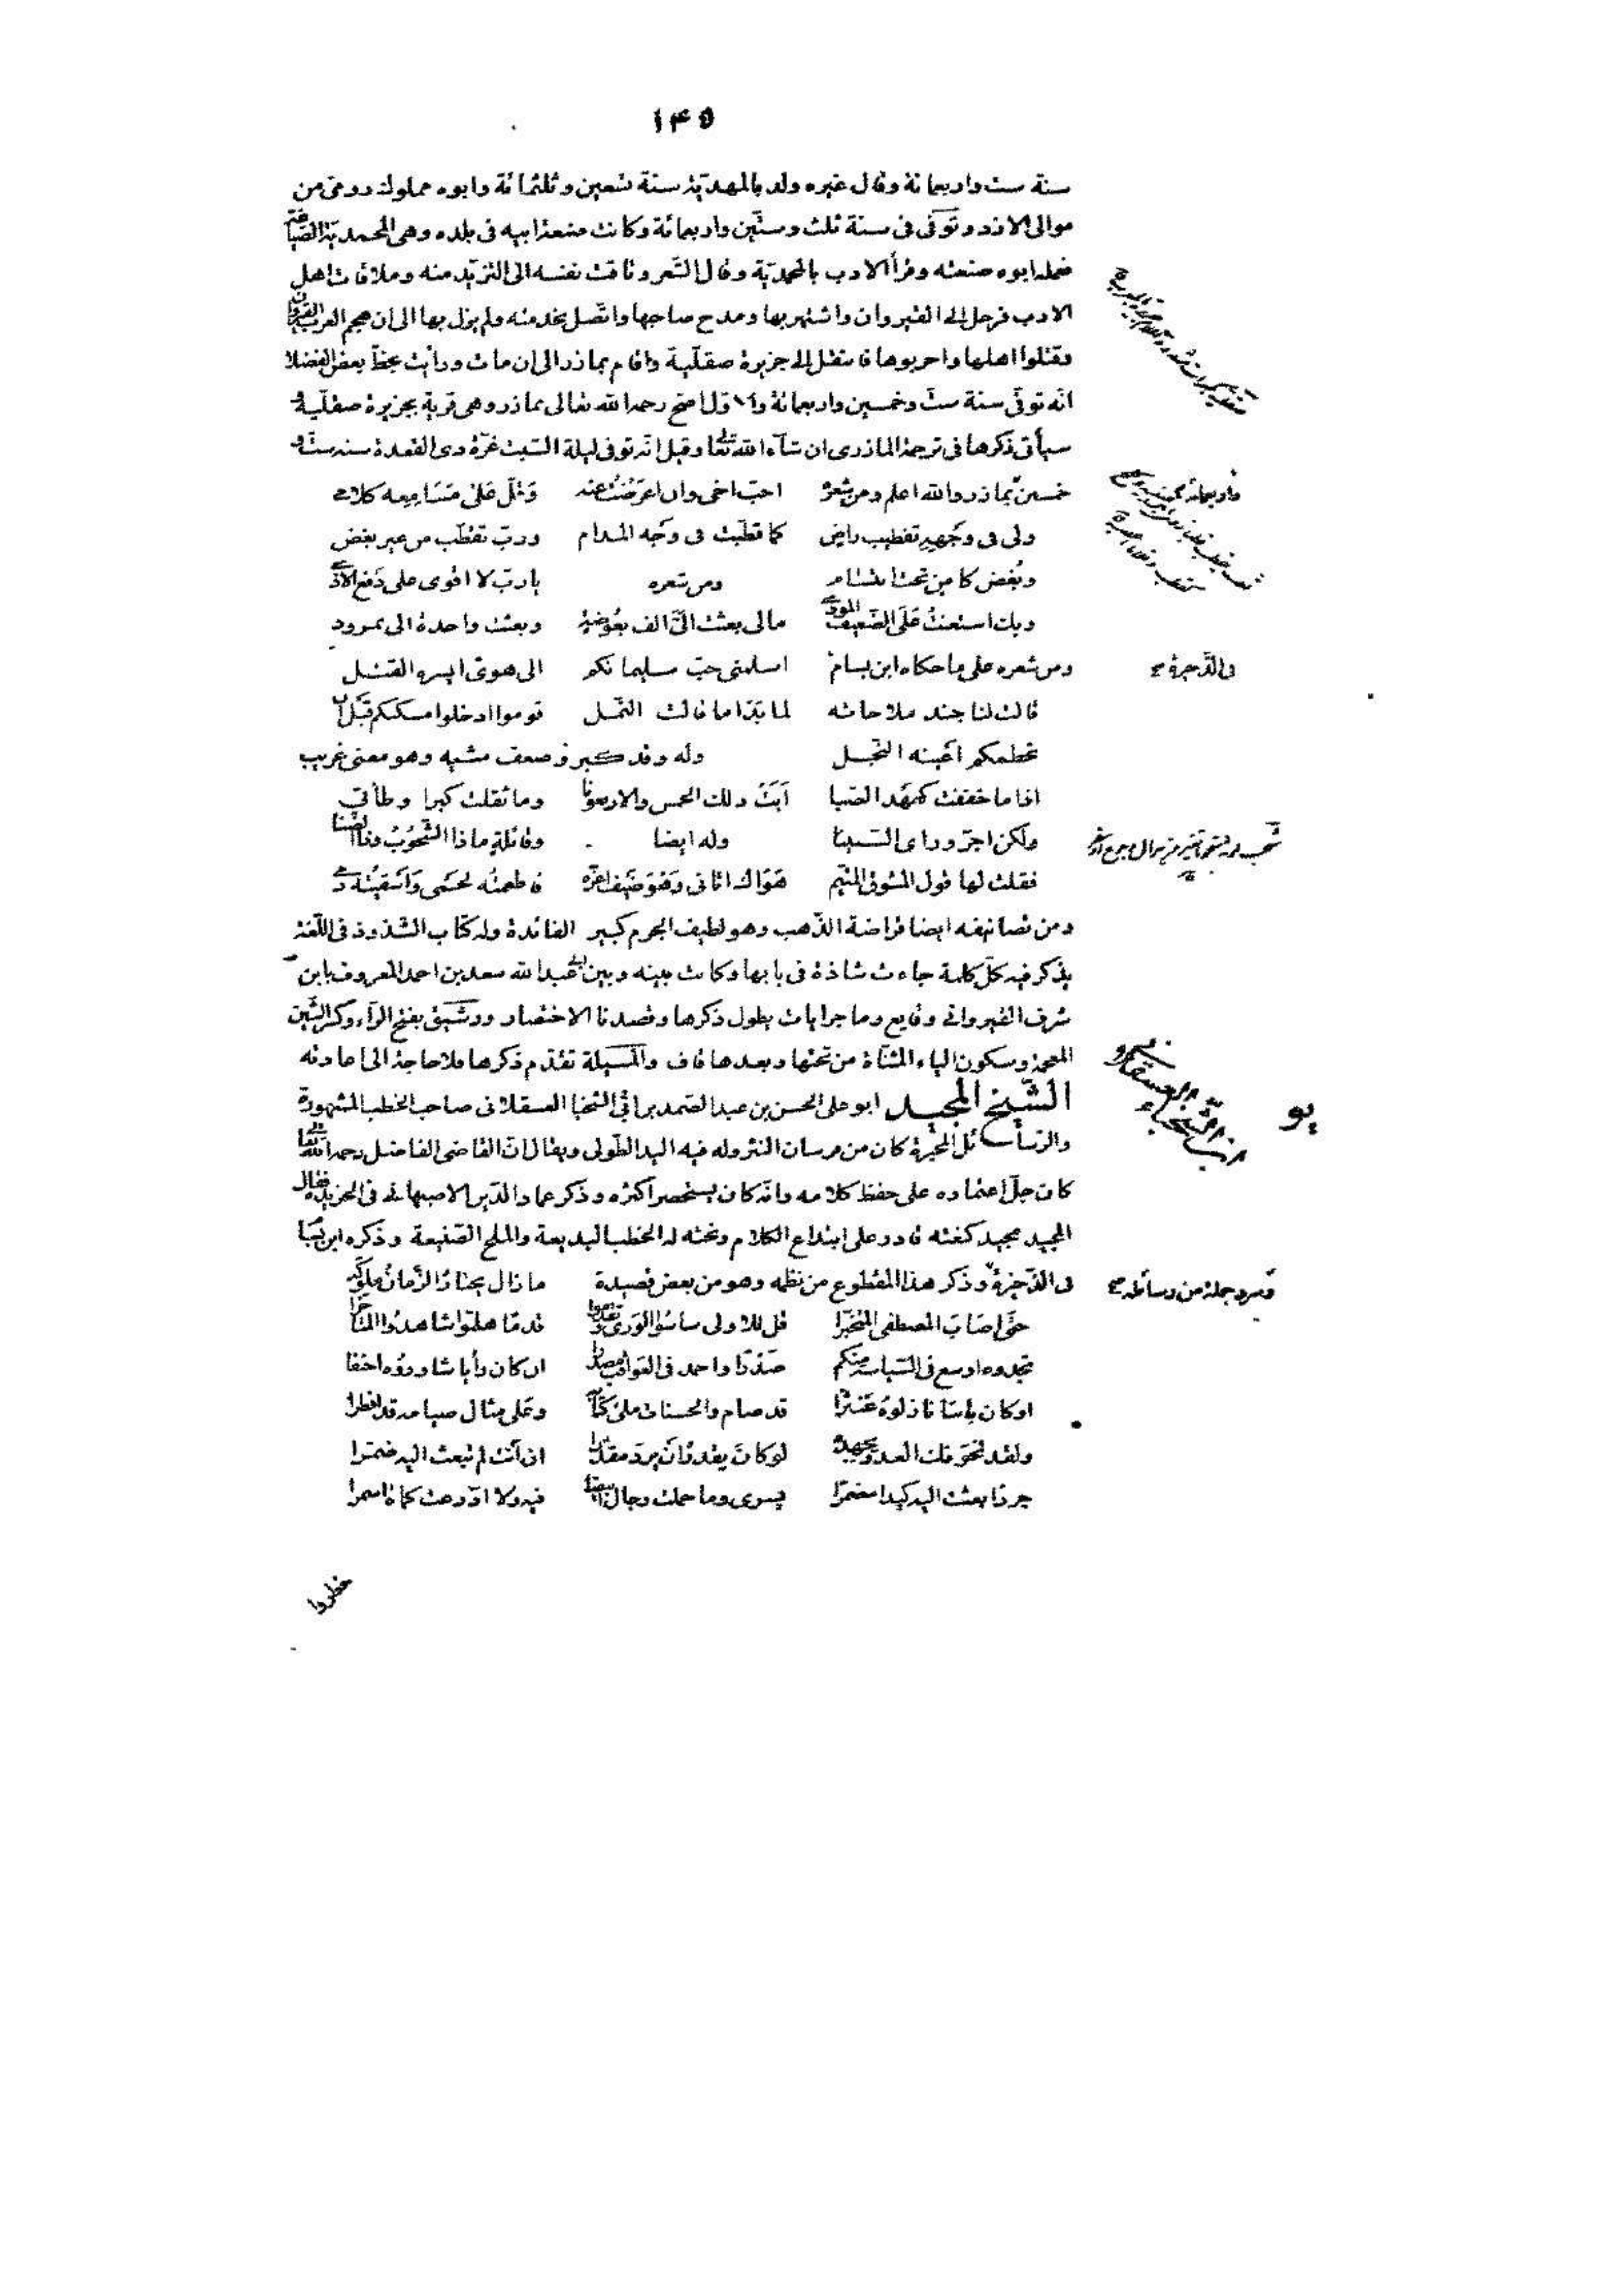 ١٤٥
سنة ست واربعمائة وقال غيره ولد بالمهديّة سنة تسعين وثلثمائة وابوه مملوك رومىّ من
موالى الازد وتوفّى فى سنة ثلث وستّين واربعمائة وكانت صنعة ابيه فى بلده وهى المحمديّة الصّياغة
فعلمه ابوه صنعته وقرأ الادب بالمحمديّة وقال الشّعر وتاقت نفسه الى التزيّد منه وملاقات اهل
الادب فرحل الى القيروان واشتهر بها ومدح صاحبها واتّصل بخدمته ولم يزل بها الى ان هجم العرب القيروان
وقتلوا اهلها واخربوها فانتقل الى جزيرة صقلّية واقام بماذر الى ان مات ورأيت بخطّ بعض الفضلا
انّه توفّى سنة ستّ وخمسين واربعمائة والاوّل اصحّ رحمه الله تعالى بماذر وهى قرية بجزيرة صقلّية و
سيأتى ذكرها فى ترجمة المازرى ان شآء الله تعالى وقيل انّه توفى ليلة السّبت غرّة ذى القعدة سنه ستّ و
خمسين بماذر والله اعلم ومن شعره احبّ اخى وان اعرضت عنه وقلّ على مسامعه كلامى
ولى فى وجهه تقطيب راض كما قطّبت فى وجه المدام وربّ تقطّب من غير بغض
وبغض كامن تحت ابتسام ومن شعره يا ربّ لا اقوى على دفع الاذى
وبك استعنت على الضّعيف الموذى مالى بعثت الىّ الف بعوضة وبعثت واحدة الى نمرود
ومن شعره على ما حكاه ابن بسام اسلمنى حبّ سليمانكم الى هوى ايسره القتل
فى الذّخيرة
قالت لنا جند ملاحاته لما بدا ما قالت النّمل قوموا ادخلوا مسكنكم قبل ان
تحطمكم اعينه النّجل وله وقد كبر وضعف مشيه وهو معنى غريب
اذا ما خففت كعهد الصّبا ابت ذلك الخمس والاربعونا وما ثقلت كبرا وطأتى
ولكن اجرّ ورائ السّنينا وله ايضا وقائلة ماذا الشّحوب وذا الضّنا
فقلت لها قول المشوق المتيّم هواك اتانى وهو ضيف اعزّه فاطعمته لحمى واسقيته دمى
ومن تصانيفه ايضا قراضة الذّهب وهو لطيف الجرم كبير الفائدة وله كتاب الشذوذ فى اللّغة
يذكر فيه كلّ كلمة جاءت شاذة فى بابها وكانت بينه وبين ابى عبد الله سعد بن احمد المعروف بابن
شرف القيروانى وقايع وماجرايات يطول ذكرها وقصدنا الاختصار ورشيق بفتح الرآء وكسر الشين
المعجمة وسكون الياء المثنّاة من تحتها وبعدها قاف والمسيلة تقدّم ذكرها فلا حاجة الى اعادته
الشّيخ المجيد ابو على الحسن بن عبد الصّمد بن ابى الشخبا العسقلانى صاحب الخطب المشهورة
يو
والرّسائل المحبّرة كان من فرسان النثر وله فيه اليد الطّولى ويقال انّ القاضى الفاضل رحمه الله تعالى
كان جلّ اعتماده على حفظ كلامه وانّه كان يستحضر اكثره وذكر عماد الدّين الاصبهانى فى الخريدة فقال
المجيد مجيد كنعته قادر على ابتداع الكلام ونحته له الخطب البديعة والملح الصّنيعة وذكره ابن بسّام
فى الذّخيرة وذكر هذا المقطوع من نظمه وهو من بعض قصيدة ما زال يختار الزّمان ملوكه
وسرد جملة من رسائله
حتّى اصاب المصطفى المتخيّرا قل للاولى ساسوا الورى وتقدّموا قدما هلمّوا شاهدوا المتأخّرا
تجدوه اوسع فى السّياسة منكم صدرا واحمد فى العواقب مصدرا ان كان رأيا شاوروه احنفا
او كان بأسا نازلوه عنترا قد صام والحسنات ملئ كتابه وعلى مثال صيامه قد افطرا
ولقد تخوّفك العدوّ بجهده لو كان يقدر ان يردّ مقدّرا ان انت لم تبعث اليه ضمّرا
جردا بعثت اليه كيدا مضمرا يسرى وما حملت رجال ابيضا فيه ولا ادّرعت كماة اسمرا